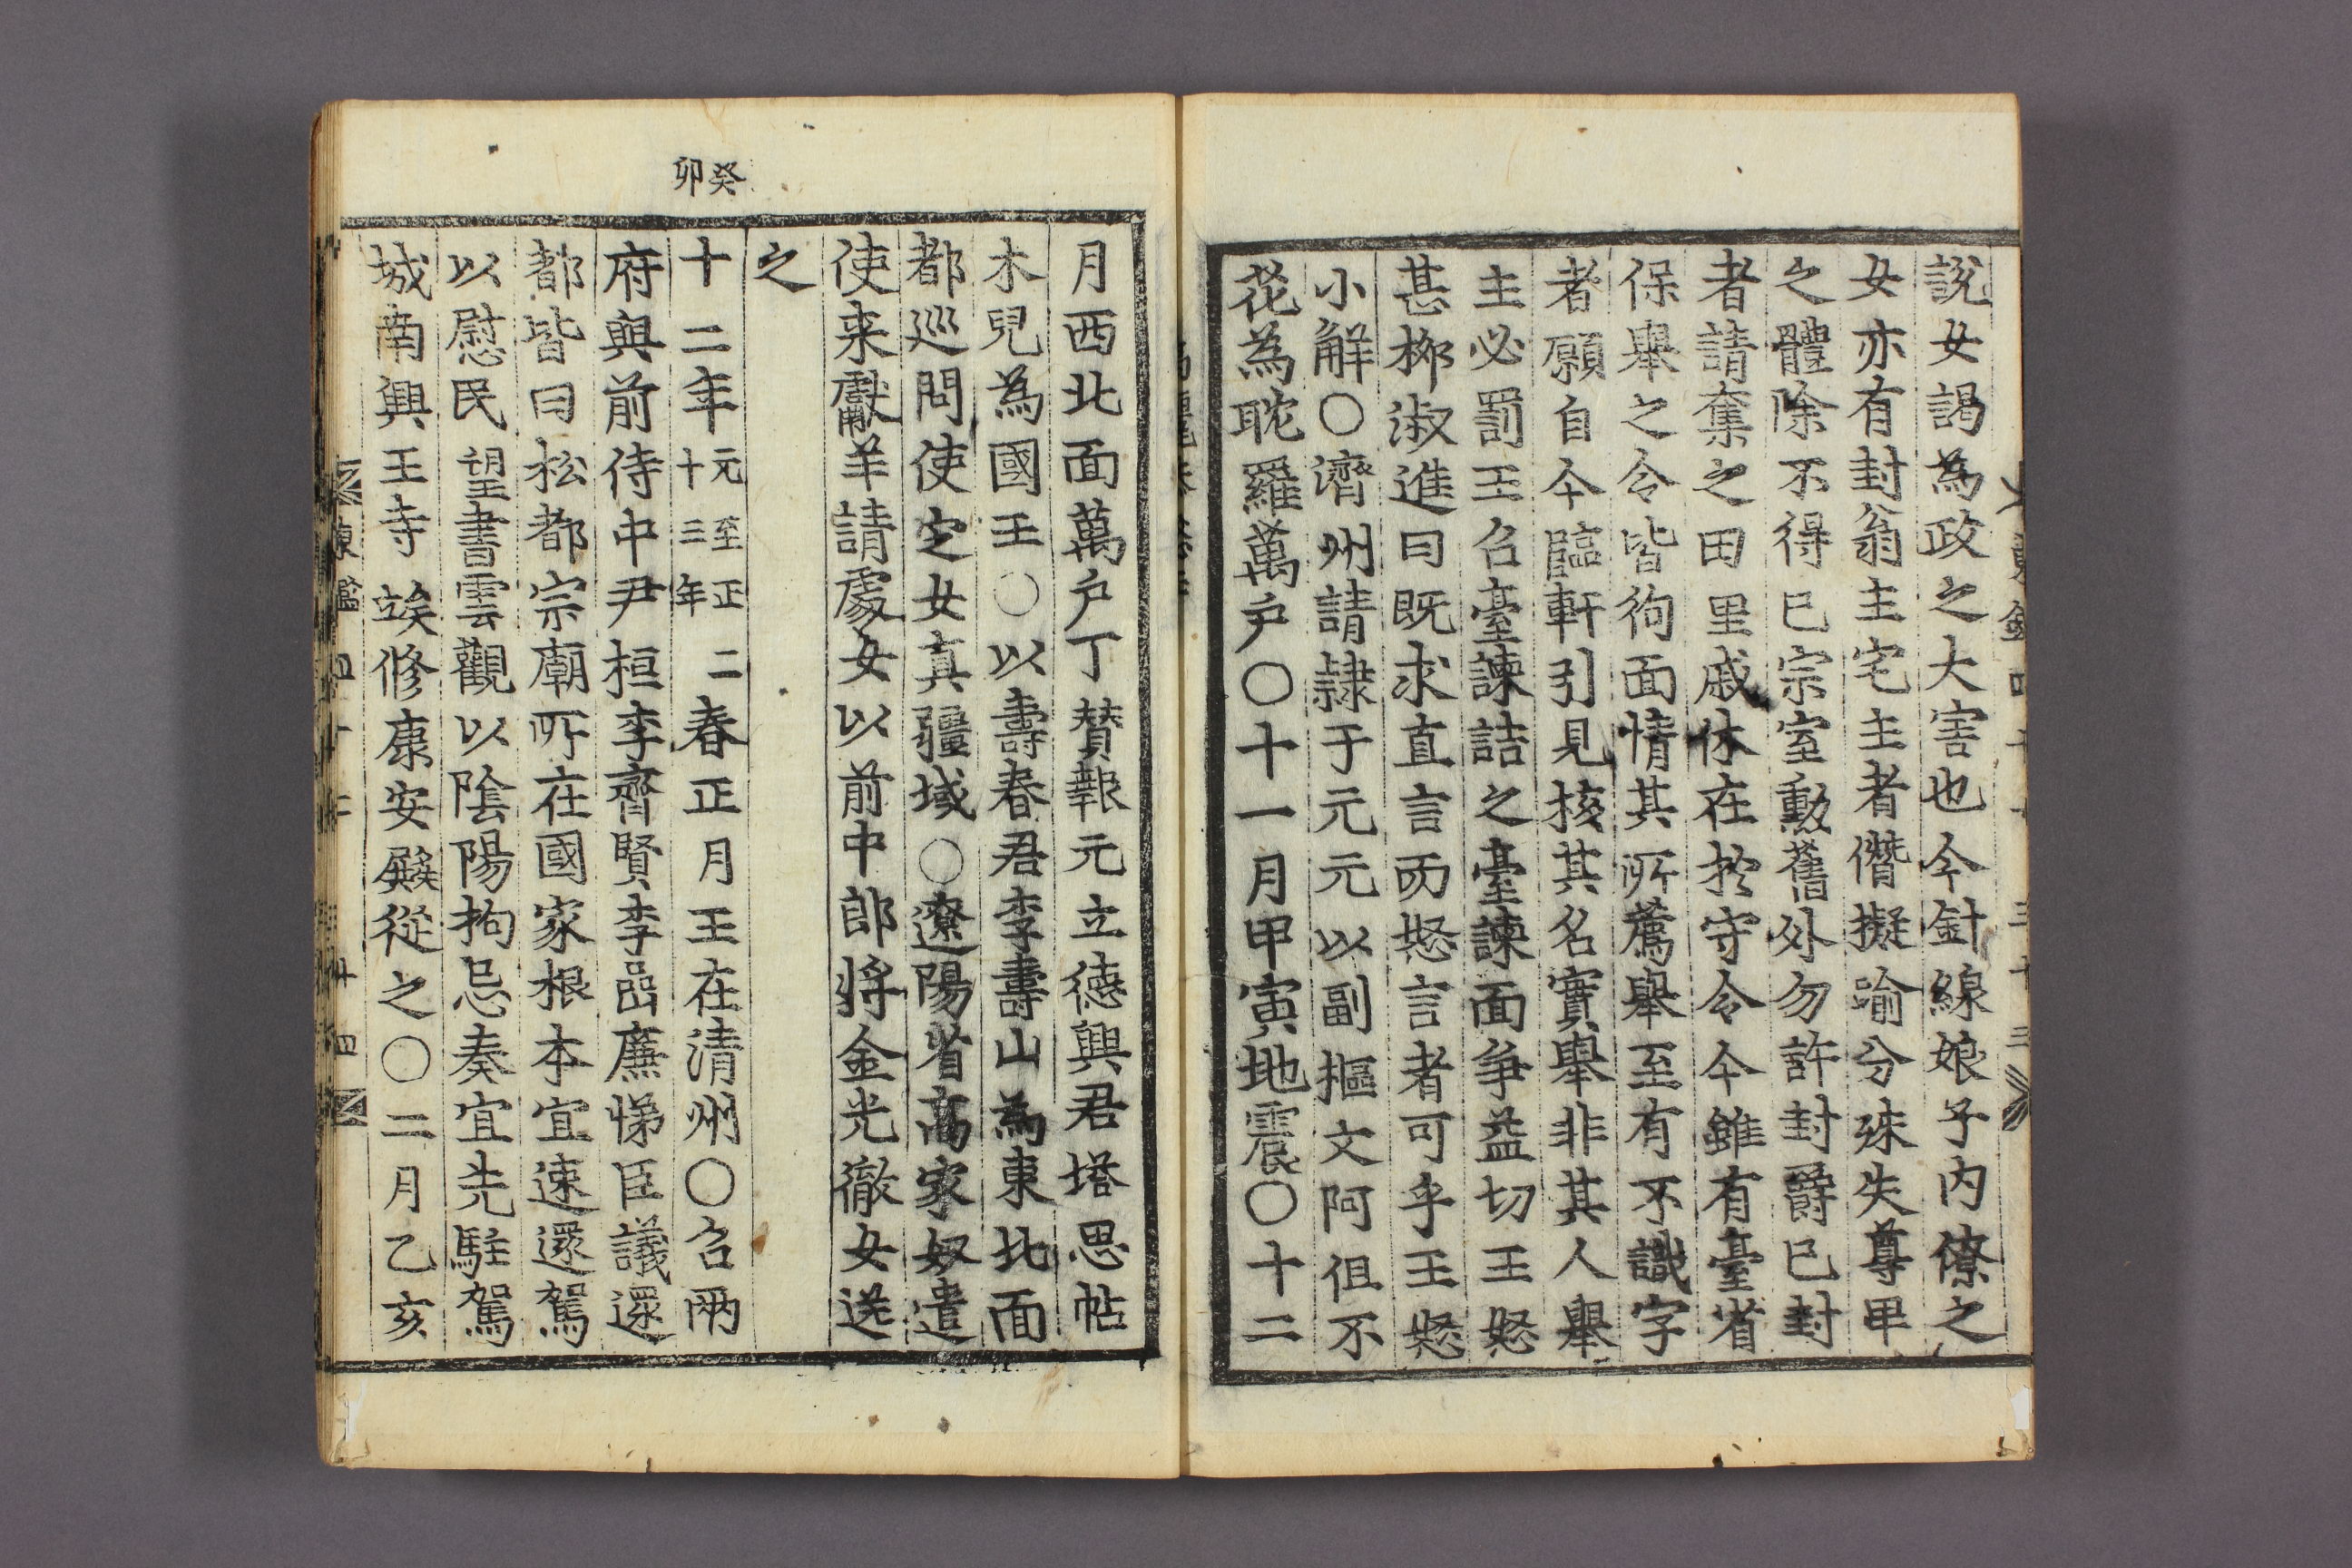 說女謁為政之大害也今針線娘子內僚之
女亦有封翁主宅主者僭擬踰分殊失尊卑
之體除不得已宗室勳舊外勿許封爵已封
者請奪之田里戚休在於守令今雖有臺省
保舉之令皆徇面情其所薦舉至有不識字
者願自今臨軒引見核其名實舉非其人舉
主必罰王召臺諫詰之臺諫面爭益切王怒
甚柳淑進曰既求直言而怒言者可乎王怒
小解○濟州請隷于元元以副樞文阿但不
花為耽羅萬戶○十一月甲寅地震○十二
月西北面萬戶丁贊報元立德興君塔思帖
木兒為國王○以壽春君李壽山為東北面
都巡問使定女真疆域○遼陽省高家奴遣
使来獻羊請處女以前中郎將金光徹女送
之
癸卯
十二年元至正二十三年春正月王在清州○召兩
府與前侍中尹桓李齊賢李嵒廉悌臣議還
都皆曰松都宗廟所在國家根本宜速還駕
以慰民望書雲觀以陰陽拘忌奏宜先駐駕
城南興王寺竢修康安殿從之○二月乙亥